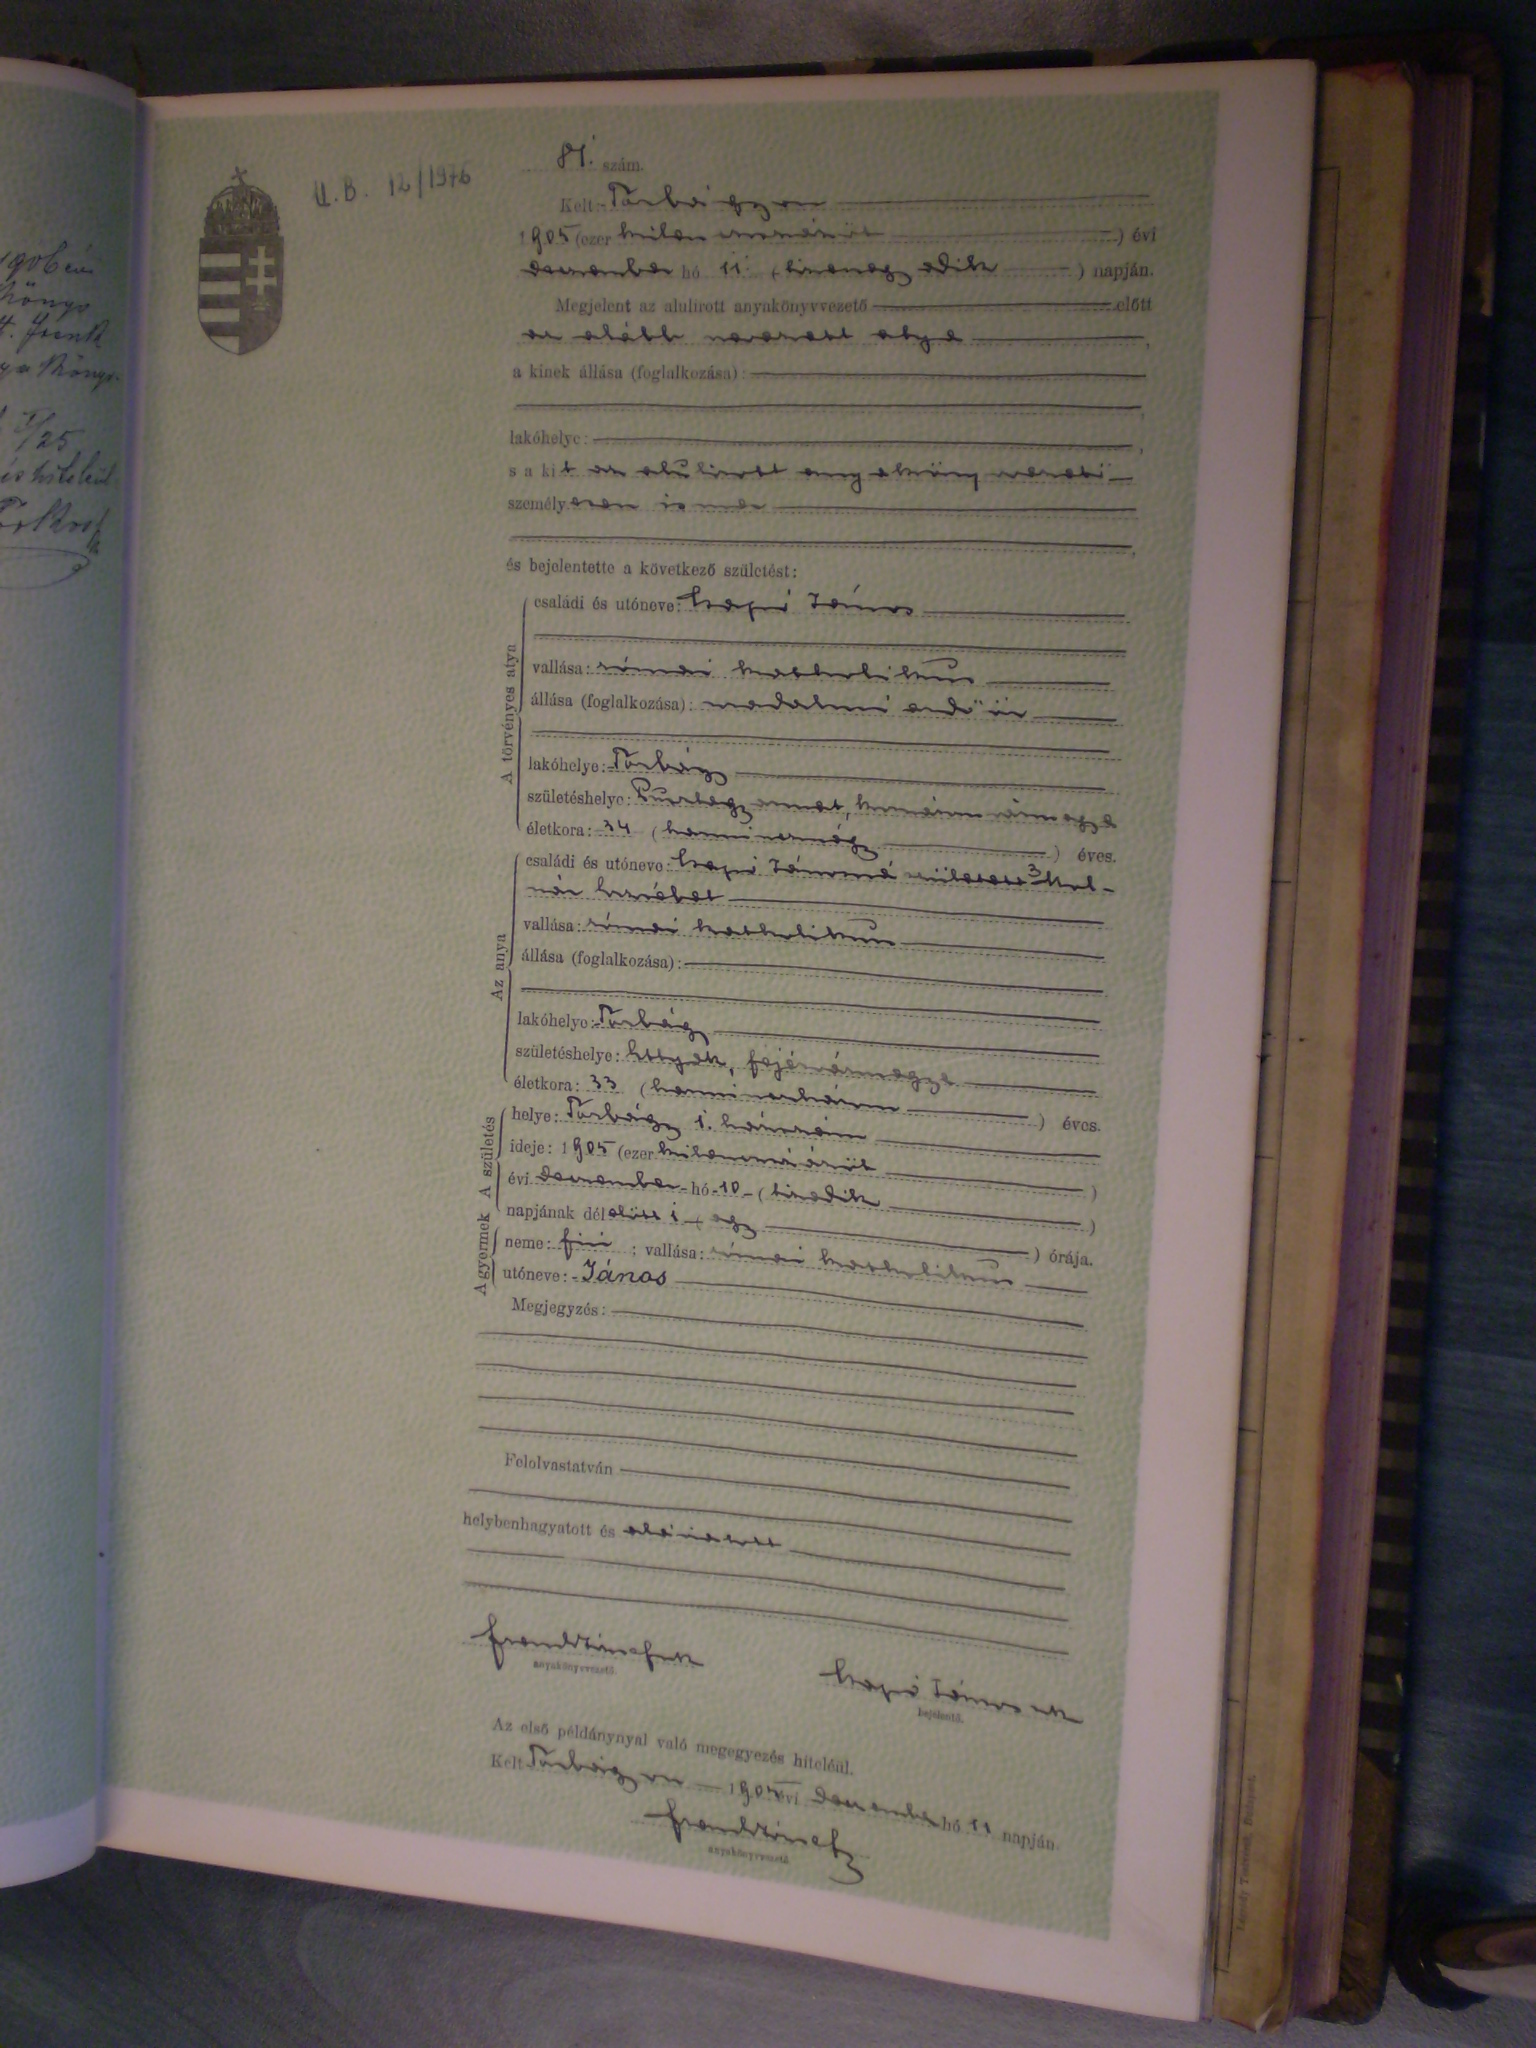 U.B. 12/1976
81. szám.
Kelt Torbágyon
1905 (ezer kilencszázöt ) évi
deczember hó 11 (tizenegyedik ) napján.
Megjelent az alulirott anyakönyvvezető előtt
az alább nevezett atya
a kinek állása (foglalkozása):
lakóhelye:
s a kit az alulirott anyakönyvvezető
személyesen ismer
és bejelentette a következő születést:
A törvényes atya
családi és utóneve: János
vallása: római katholikus
állása (foglalkozása): uradalmi erdőőr
lakóhelye: Torbágy
születéshelye: komárom vármegye
életkora: 34 (harmincznégy ) éves.
Az anya
családi és utóneve: Jánosné született Mol-
nár Erzsébet
vallása: római katholikus
állása (foglalkozása):
lakóhelye: Torbágy
születéshelye: Ettyek, fejérvármegye
életkora: 33 (harminczhárom ) éves.
A születés
helye: Torbágy 1. házszám
ideje: 1905 (ezer kilenczszázöt )
évi deczember hó 10 (tizedik )
napjának délelőtt 1 (egy ) órája.
A gyermek
neme: fiú ; vallása: római katholikus
utóneve: János
Megjegyzés:
Felolvastatván
helybenhagyatott és aláiratott
anyakönyvvezető.
János
bejelentő.
Az első példánynyal való megegyezés hiteléül.
Kelt Torbágyon 1905 évi deczember hó 11 napján.
anyakönyvvezető